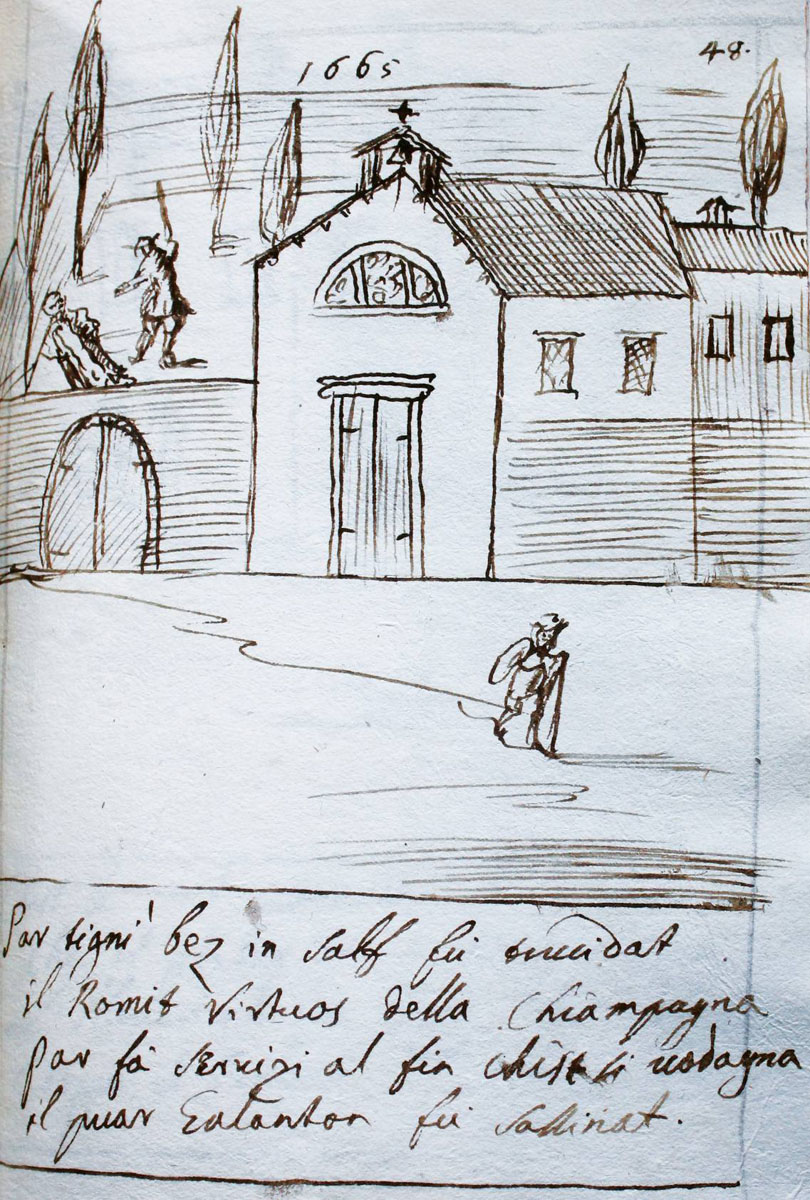 1665
48.
Par tigni bez in salf fù trucidat
il Romit virtuos della Chiampagna
par fà servizi al fin chist si uadagna
il puar Galanton fù sassinat.